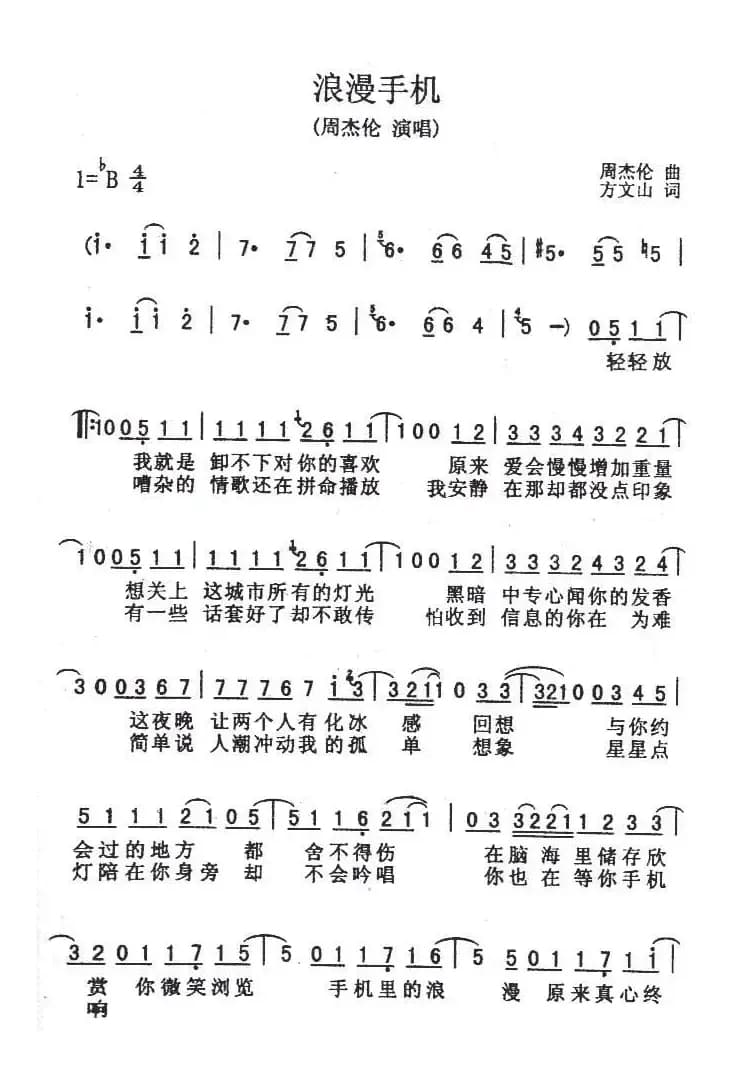 浪漫手机
(周杰伦 演唱)
1=♭B 4/4
周杰伦 曲
方文山 词
(i· i i 2 | 7· 7 7 5 | 6· 6 6 4 5 | #5· 5 5 ♮5 |
i· i i 2 | 7· 7 7 5 | 6· 6 6 4 | 5 —) 0 5 1 1
轻轻放
1 0 0 0 5 1 1 | 1 1 1 1 2 6 1 1 | 1 0 0 1 2 | 3 3 3 4 3 2 2 1 |
我就是 卸不下对你的喜欢 原来 爱会慢慢增加重量
嘈杂的 情歌还在拼命播放 我安静 在那却都没点印象
1 0 0 0 5 1 1 | 1 1 1 1 2 6 1 1 | 1 0 0 1 2 | 3 3 3 2 4 3 2 4 |
想关上 这城市所有的灯光 黑暗 中专心闻你的发香
有一些 话套好了却不敢传 怕收到 信息的你在 为难
3 0 0 3 6 7 | 7 7 7 6 7 i 3 | 3 2 1 1 0 3 3 | 3 2 1 0 0 3 4 5 |
这夜晚 让两个人有化冰 感 回想 与你约
简单说 人潮冲动我的孤 单 想象 星星点
5 1 1 1 2 1 0 5 | 5 1 1 6 2 1 1 | 0 3 3 2 2 1 1 2 3 3
会过的地方 都 舍不得伤 在脑 海里储存欣
灯陪在你身旁 却 不会吟唱 你也 在 等你手机
3 2 0 1 1 7 1 5 | 5 0 1 1 7 1 6 | 5 5 0 1 1 7 1 i |
赏 你微笑浏览 手机里的浪 漫 原来真心终
响